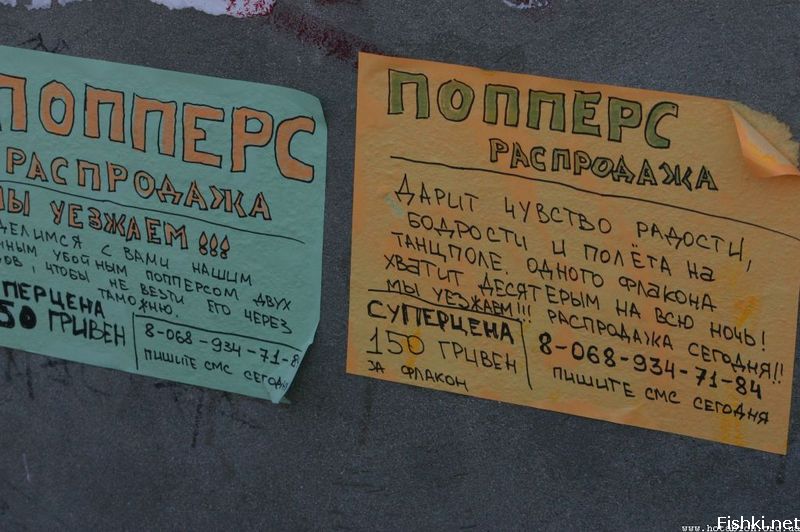 ПОППЕРС
РАСПРОДАЖА
МЫ УЕЗЖАЕМ!!!
ДЕЛИМСЯ С ВАМИ НАШИМ
УБОЙНЫМ ПОППЕРСОМ ДВУХ
ЧТОБЫ НЕ ВЕЗТИ ЕГО ЧЕРЕЗ
ТАМОЖНЮ.
50 ГРИВЕН
8-068-934-71-8
ПИШИТЕ СМС СЕГОДНЯ
ПОППЕРС
РАСПРОДАЖА
ДАРИТ ЧУВСТВО РАДОСТИ,
БОДРОСТИ И ПОЛЁТА НА
ТАНЦПОЛЕ. ОДНОГО ФЛАКОНА
ХВАТИТ ДЕСЯТЕРЫМ НА ВСЮ НОЧЬ!
МЫ УЕЗЖАЕМ!!! РАСПРОДАЖА СЕГОДНЯ!!
СУПЕРЦЕНА
150 ГРИВЕН
ЗА ФЛАКОН
8-068-934-71-84
ПИШИТЕ СМС СЕГОДНЯ
Fishki.net